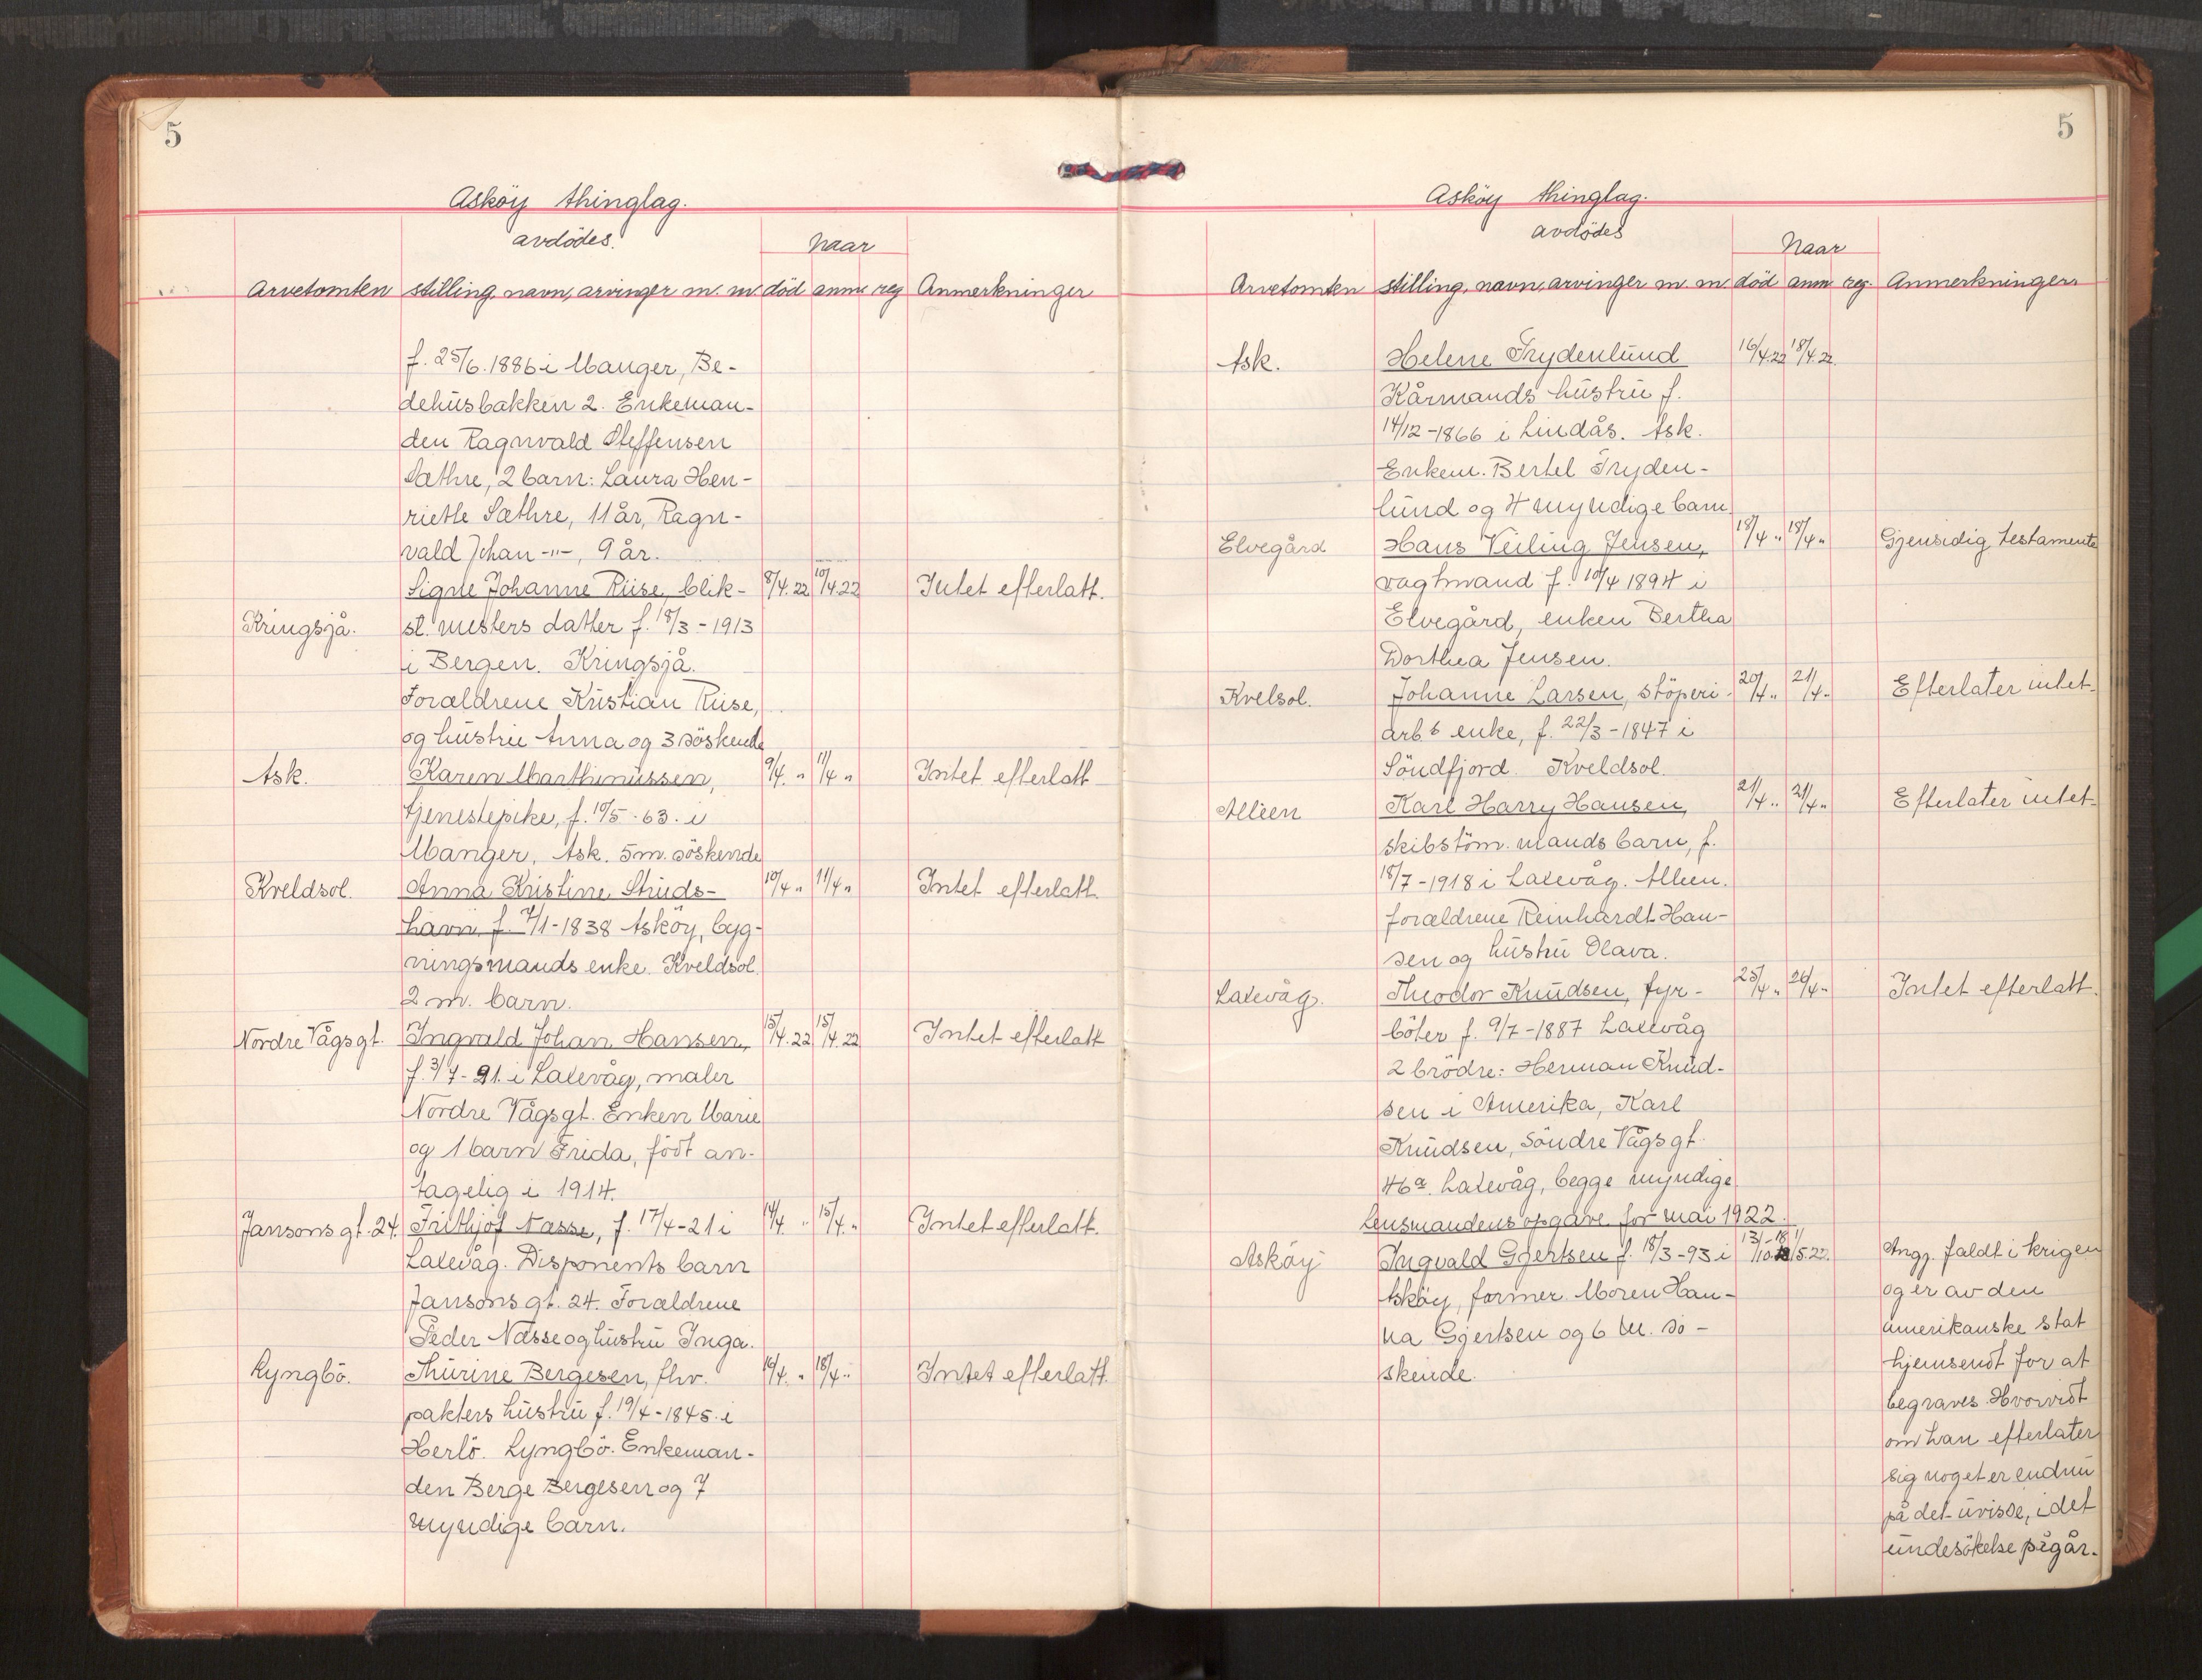 5
Asköy thinglag.
avdödes.
Naar
Arvetomten stilling, navn, arvinger m. m. död anm reg Anmerkninger
f. 25/6. 1886 i Manger, Be-
dehusbakken 2. Enkeman-
den Ragnvald Steffensen
Sæthre, 2 barn: Laura Hen-
riette Sæthre, 11 år, Ragn-
vald Johan -"-, 9 år.
Signe Johanne Riise, blik- 8/4.22 10/4.22 Intet efterlatt.
Kringsjå. sl. mesters datter f. 18/3 - 1913
i Bergen. Kringsjå.
Forældrene Kristian Riise,
og hustru Anna og 3 söskende
Ask. Karen Marthinussen, 9/4. " 11/4 " Intet efterlatt
tjenestepike, f. 10/5. 63. i
Manger, Ask. 5 m. söskende
Kveldsol. Anna Kristine Struds- 10/4 " 11/4 " Intet efterlatt.
havn, f. 7/1 - 1838 Asköy, byg-
ningsmands enke. Kveldsol.
2 m. barn.
Nordre Vågsgt. Ingvald Johan Hansen, 15/4.22 15/4.22 Intet efterlatt
f. 3/7 - 91. i Laxevåg, maler
Nordre Vågsgt. Enken Marie
og 1 barn Frida, födt an-
tagelig i 1914.
Jansonsgt. 24. Frithjof Næsse, f. 17/4 - 21 i 14/4 " 15/4. " Intet efterlatt.
Laxevåg. Disponents barn
Jansonsgt. 24. Forældrene
Peder Næsse og hustru Inga.
Lyngbö. Thurine Bergesen, fhv. 16/4. " 18/4 " Intet efterlatt.
pakters hustru f. 19/4 - 1845. i
Herlö. Lyngbö. Enkeman-
den Berge Bergesen og 7
myndige barn.
5
Asköy thinglag.
avdödes
Naar
Arvetomten stilling, navn, arvinger m. m död anm reg. Anmerkninger
Ask. Helene Frydenlund 16/4.22 18/4.22.
Kårmands hustru f.
14/12 - 1866 i Lindås. Ask.
Enkem. Bertel Fryden-
lund og 4 myndige barn
Elvegård Hans Veiling Jensen, 18/4 " 18/4 " Gjensidig testamente
vagtmand f. 10/4 1894 i
Elvegård, enken Bertha
Dorthea Jensen.
Kvelsol. Johanne Larsen, stöperi- 20/4 " 21/4 " Efterlater intet.
arb.s enke, f. 22/3 - 1847 i
Söndfjord. Kveldsol.
Alleen Karl Harry Hansen, 21/4 " 21/4 " Efterlater intet.
skibstöm. mands barn, f.
18/7 - 1918 i Laxevåg. Alleen.
forældrene Reinhardt Han-
sen og hustru Olava.
Laxevåg. Theodor Knudsen, fyr- 25/4 " 26/4 " Intet efterlatt.
böter f. 9/7 - 1887 Laxevåg
2 brödre: Herman Knud-
sen i Amerika, Karl
Knudsen, Söndre Vågsgt.
46a. Laxevåg, begge myndige
Lensmandens opgave for mai 1922.
Asköy Ingvald Gjertsen f. 18/3 - 93 i 13/10 - 18 1/5 22. Angj. faldt i krigen
Asköy, former. Moren Han- og er av den
na Gjertsen og 6 m. sö- amerikanske stat
skende. hjemsendt for at
begraves. Hvorvidt
om han efterlater
sig noget er endnu
på det uvisse, i det
undesökelse pågår.